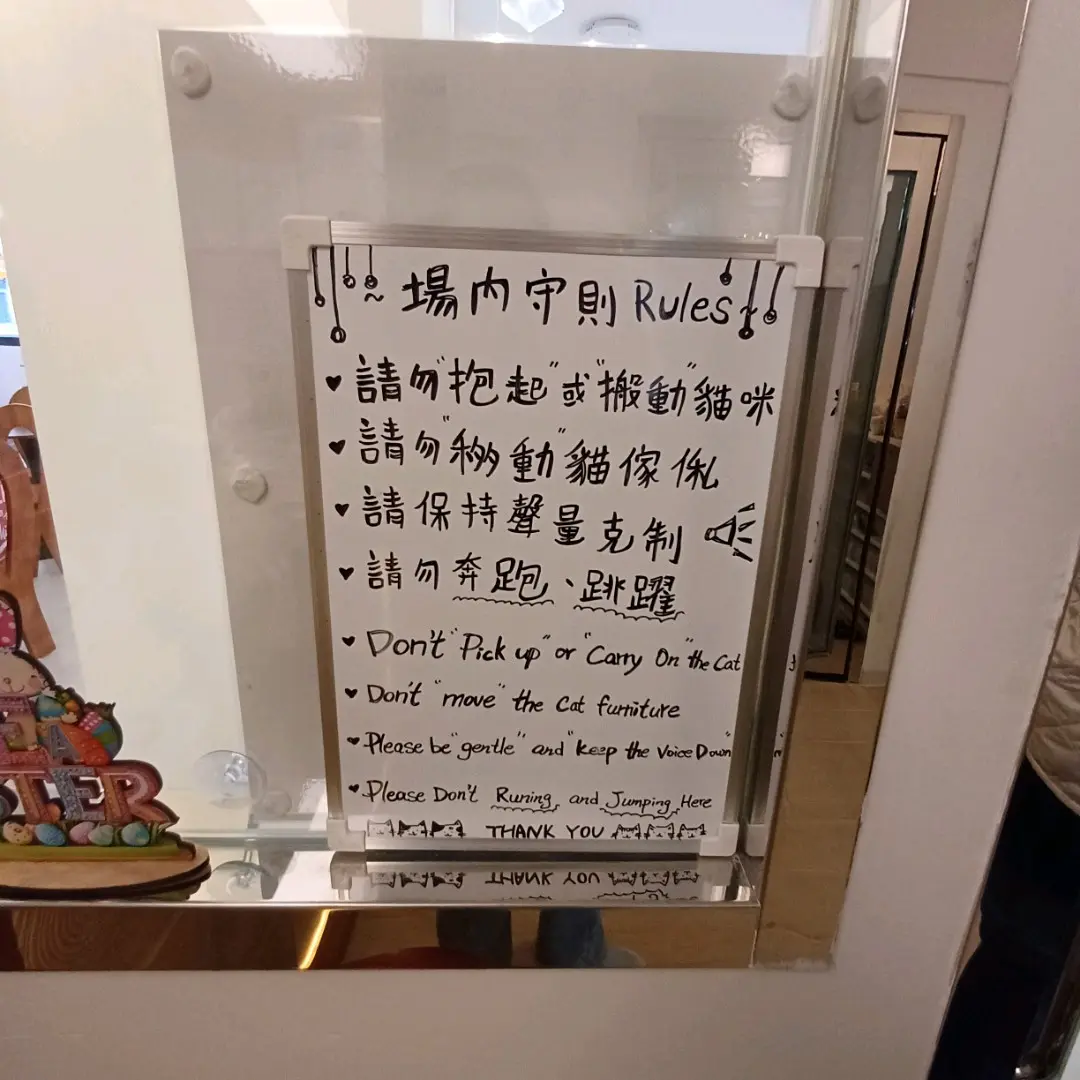 ~ 場內守則 Rules ~
♥ 請勿"抱起"或"搬動"貓咪
♥ 請勿"移動"貓傢俬
♥ 請保持聲量克制
♥ 請勿奔跑、跳躍
♥ Don't "Pick up" or "Carry On" the Cat
♥ Don't "move" the Cat furniture
♥ Please be "gentle" and "keep the Voice Down"
♥ Please Don't Runing and Jumping Here
THANK YOU
EASTER